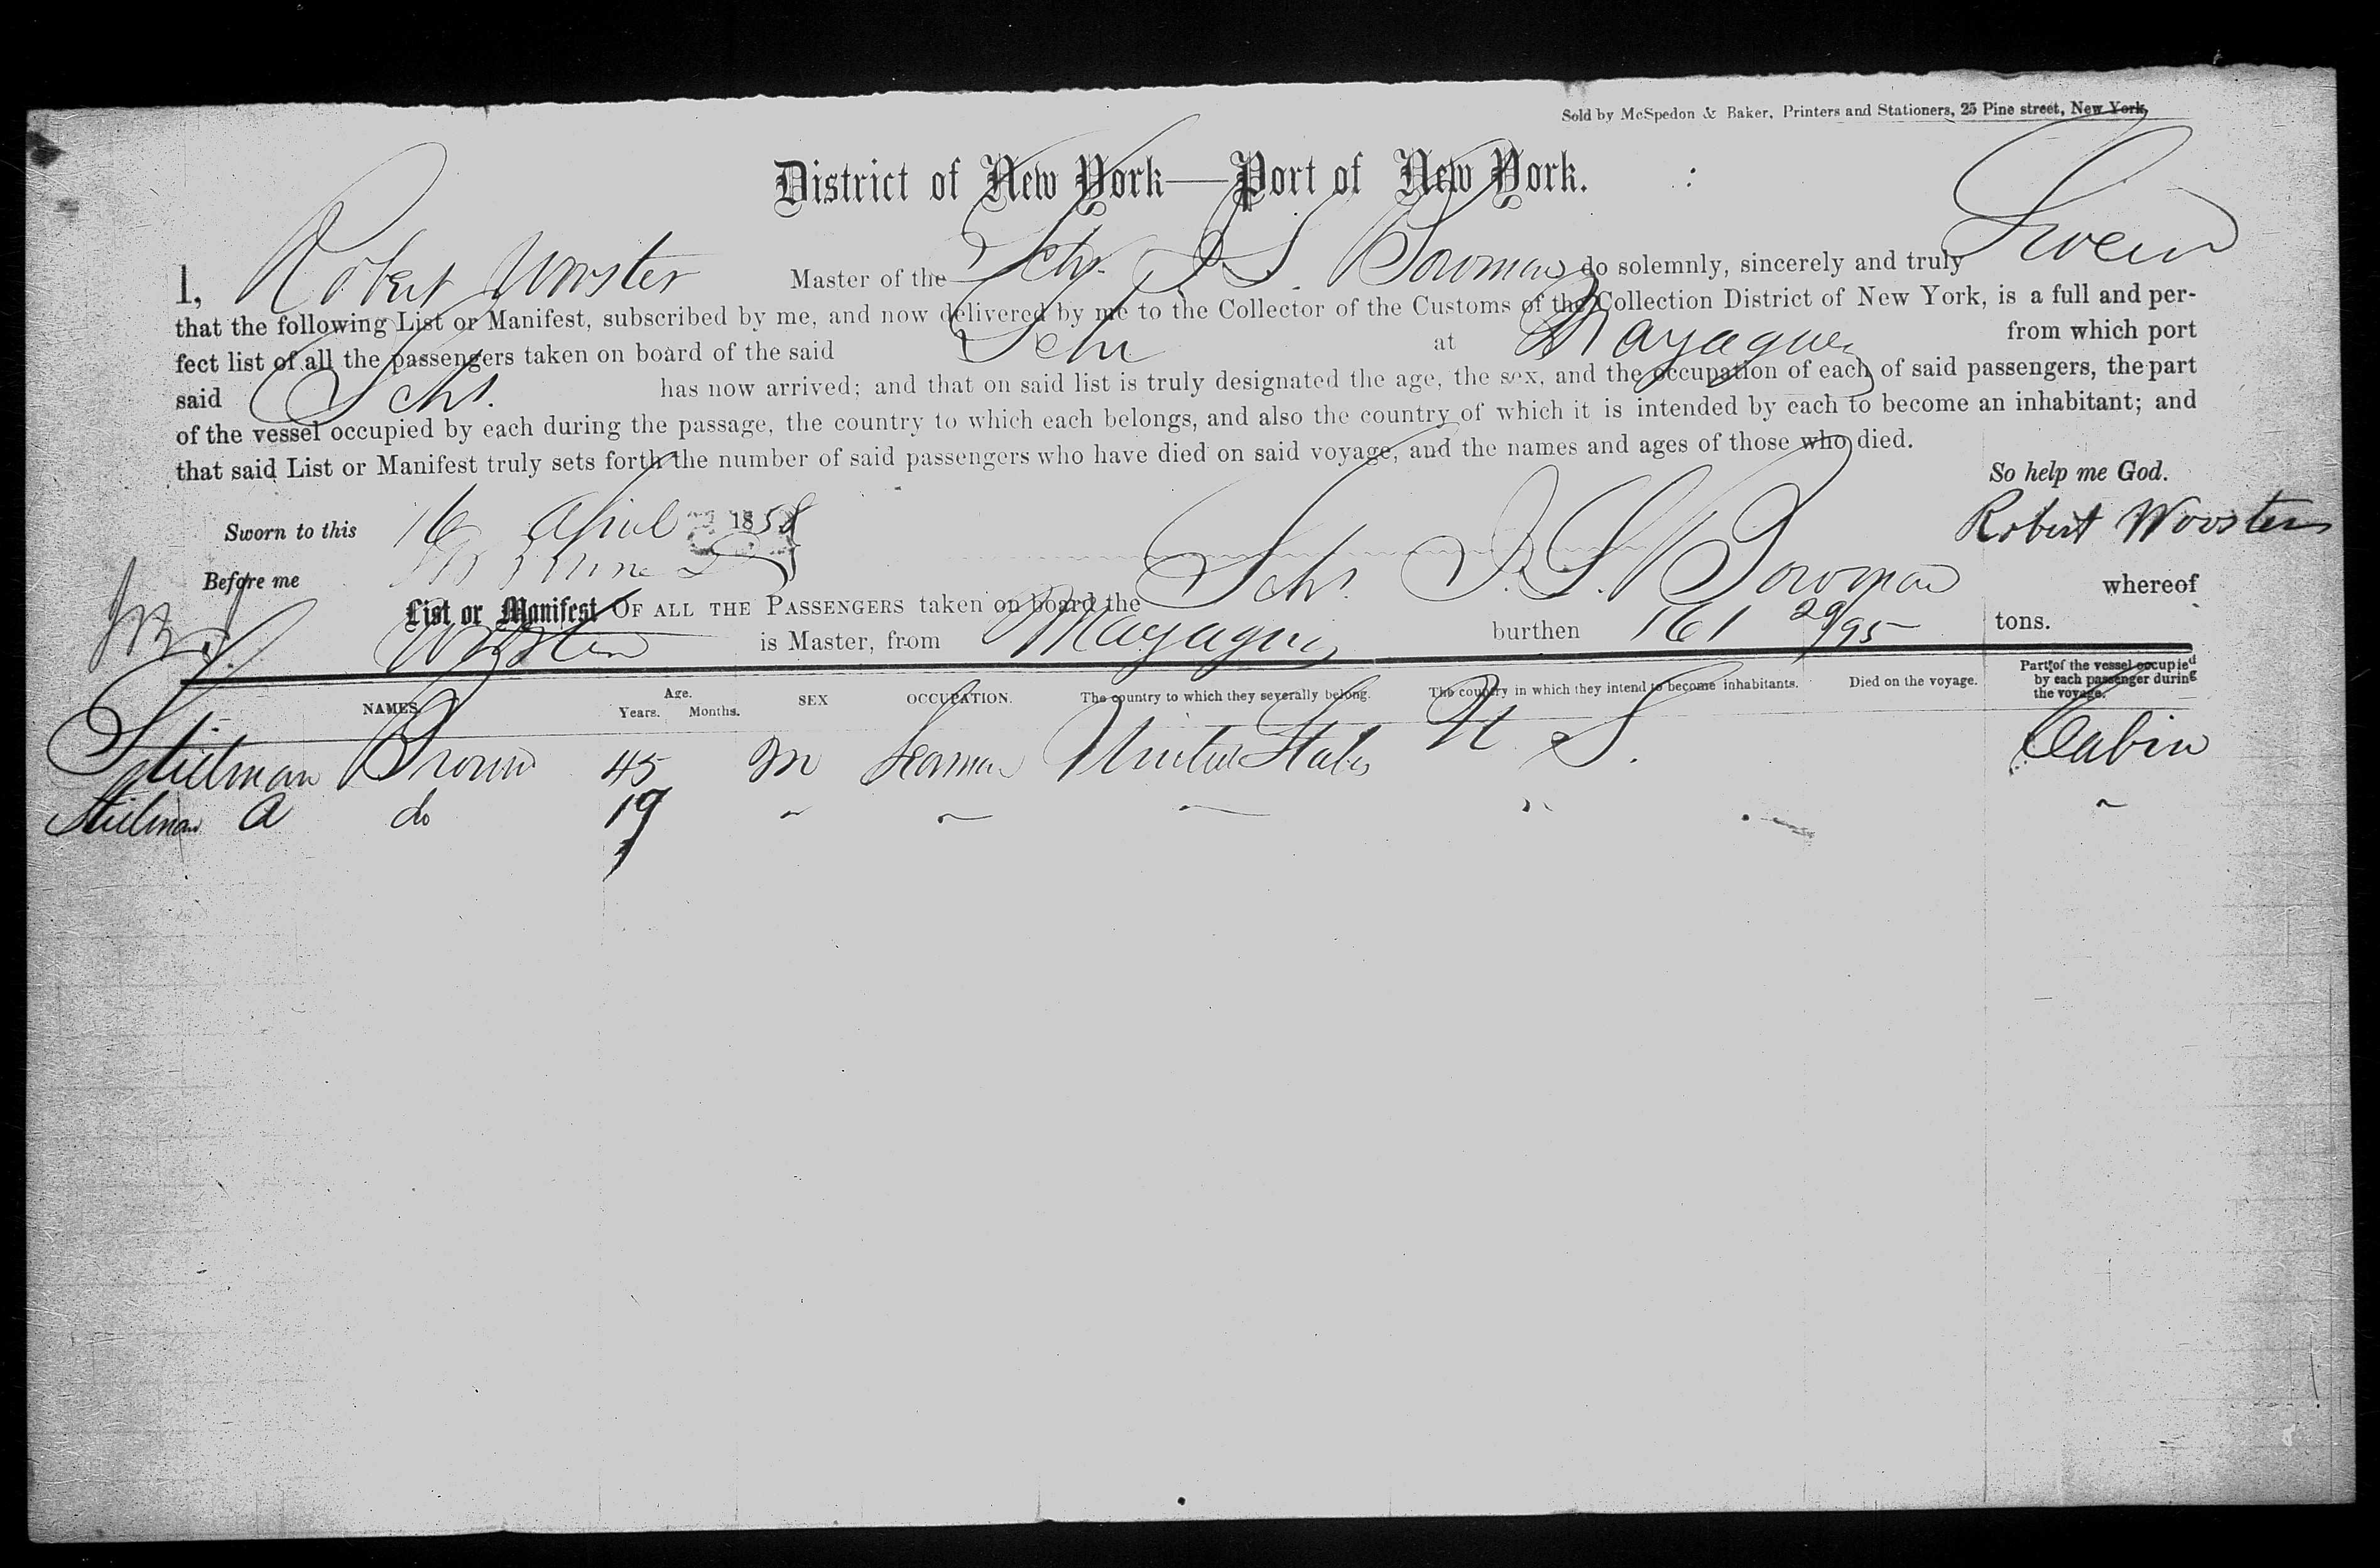 Sold by McSpedon & Baker, Printers and Stationers, 25 Pine street, New York,
District of New York—Port of New York.
I, Robert Wooster Master of the Schr. I. S. Bowman do solemnly, sincerely and truly Swear
that the following List or Manifest, subscribed by me, and now delivered by me to the Collector of the Customs of the Collection District of New York, is a full and per-
fect list of all the passengers taken on board of the said Schr at Mayaguez from which port
said Schr. has now arrived; and that on said list is truly designated the age, the sex, and the occupation of each of said passengers, the part
of the vessel occupied by each during the passage, the country to which each belongs, and also the country of which it is intended by each to become an inhabitant; and
that said List or Manifest truly sets forth the number of said passengers who have died on said voyage, and the names and ages of those who died.
So help me God.
Sworn to this 16 April 1858 Robert Wooster
Before me
List or Manifest OF ALL THE PASSENGERS taken on board the Schr. I. S. Bowman whereof
Wooster is Master, from Mayaguez burthen 161 29/95 tons.
NAMES Age. Years. Months. SEX OCCUPATION. The country to which they severally belong. The country in which they intend to become inhabitants. Died on the voyage. Part of the vessel occupied by each passenger during the voyage.
Stillman Brown 45 M Seaman United States U S. Cabin
Stillman A do 19 " " " " "